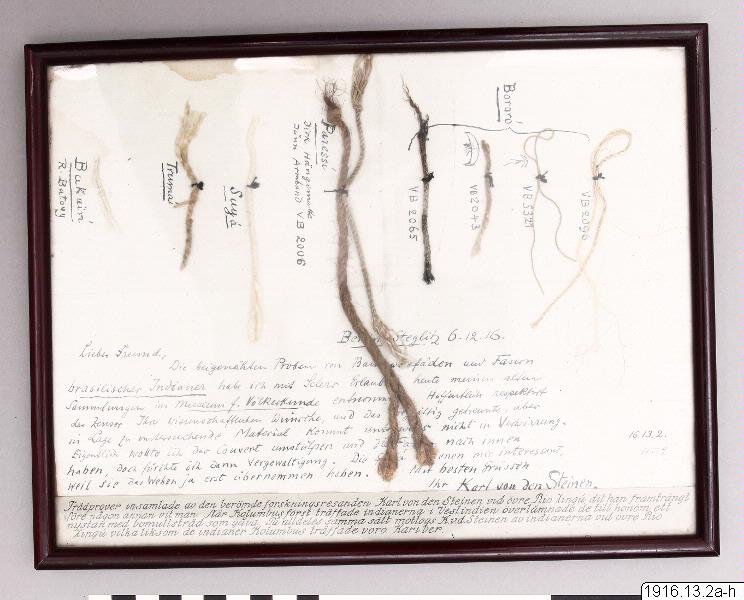 Bororó
Paressí
Trumai
VB 2006
Suyá
Bakaïri
R. Batovy
VB 2065
VB 2043
VB 5321
VB 2096
Steglitz 6.12.16.
Lieber Freund,
Die beigenähten Proben von Fasern
brasilischer Indianer habe ich mit Selers heute meinen alten
Sammlungen im Museum f. Völkerkunde Hoffentlich respektirt
der Zensor Ihre wissenschaftlichen Wünsche, und das getrennte, aber
in Lage zu untersuchende Material kommt nicht in Verwirrung.
Eigentlich wollte ich das Couvert umstülpen und nach innen
haben, doch fürchte ich dann Vergewaltigung. Die mir interessant,
weil Sie das Weben ja erst übernommen haben. Mit besten Grüssen
Ihr Karl von den Steinen.
16.13.2.
Trådprover insamlade av den berömde forskningsresanden Karl von den Steinen vid övre Rio Xingú, dit han framträngt
före någon annan vit man. När Kolumbus först träffade indianerna i Vestindien överlämnade de till honom ett
nystan med bomullstråd som gåva. På alldeles samma sätt mottogs K.v.d. Steinen av indianerna vid övre Rio
Xingú vilka liksom de indianer Kolumbus träffade voro Kariber.
1916.13.2a-h